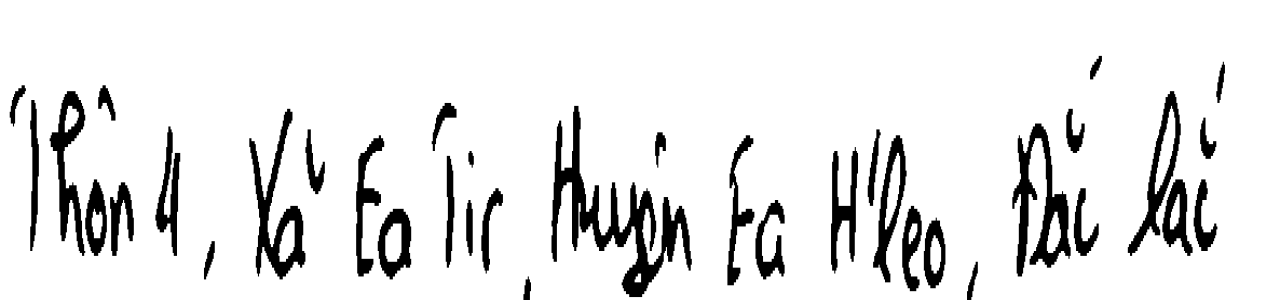 Thôn 4, Xã Ea Tir, Huyện Ea H'leo, Đắc Lắc